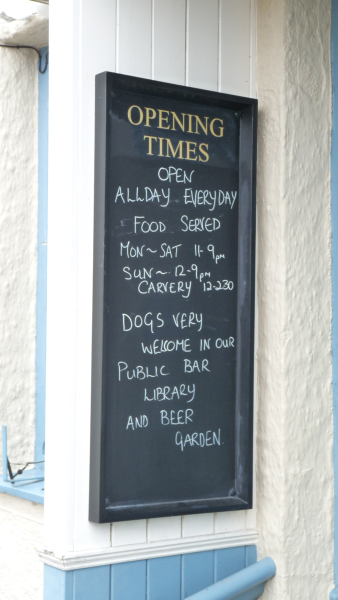 OPENING
TIMES
OPEN
ALLDAY EVERYDAY
FOOD SERVED
MON~SAT 11-9pm
SUN~ 12-9pm
CARVERY 12-230
DOGS VERY
WELCOME IN OUR
PUBLIC BAR
LIBRARY
AND BEER
GARDEN.